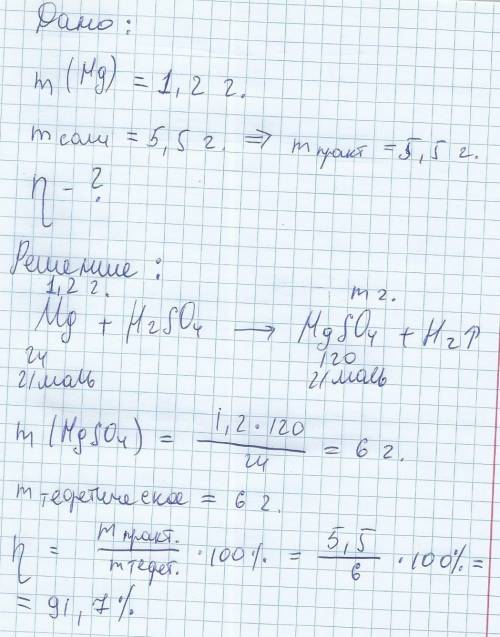 Дано:
m (Mg) = 1,2 г.
m соли = 5,5 г. ⇒ m практ = 5,5 г.
η - ?
Решение:
1,2 г. m г.
Mg + H2SO4 → MgSO4 + H2↑
24 120
г/моль г/моль
m (MgSO4) = 1,2·120 / 24 = 6 г.
m теоретическое = 6 г.
η = m практ. / m теорет. · 100% = 5,5 / 6 · 100% =
= 91,7%